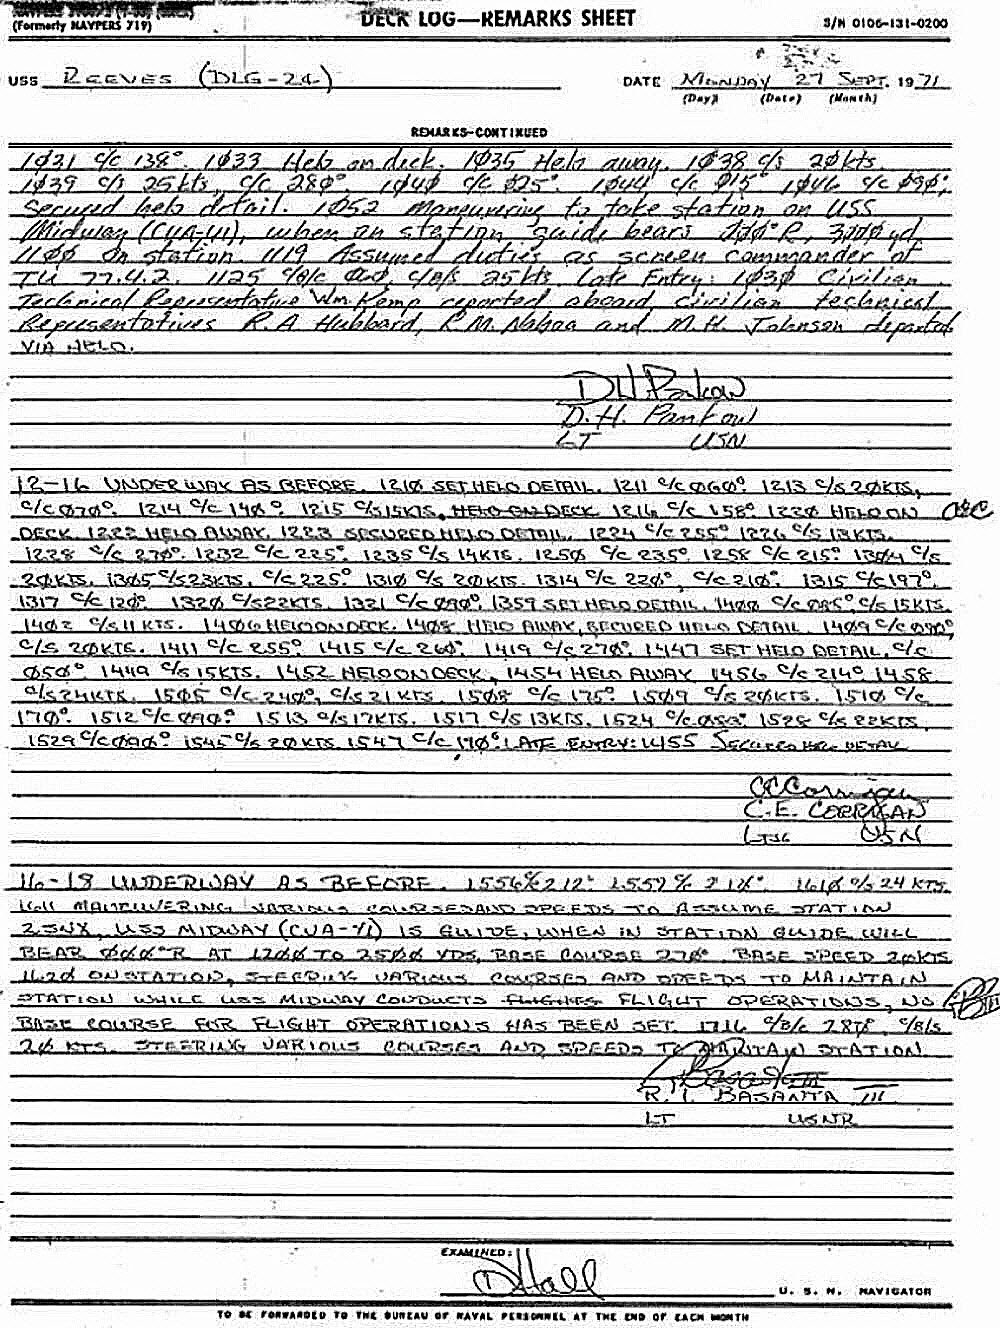 (Formerly NAVPERS 719)
DECK LOG—REMARKS SHEET
S/N 0106-131-0200
USS REEVES (DLG-24)
DATE MONDAY 27 SEPT. 1971
(Day) (Date) (Month)
REMARKS-CONTINUED
1Ø31 c/c 138°. 1Ø33 Helo on deck. 1Ø35 Helo away. 1Ø38 c/s 2Økts.
1Ø39 c/s 25kts, c/c 28Ø°. 1Ø4Ø c/c Ø25°. 1Ø44 c/c Ø15° 1Ø46 c/c Ø9Ø°,
Secured helo detail. 1Ø52 Maneuvering to take station on USS
Midway (CVA-41), when on station guide bears R, yd.
11ØØ On station. 1119 Assumed duties as screen commander of
TU 77.4.2. 1125 c/b/c c/b/s 25kts. Late Entry: 1Ø3Ø Civilian
Technical Representative Wm. Kemp reported aboard civilian technical
Representatives R.A. Hubbard, R.M. and M.H. Johnson departed
VIA HELO.
D.H. Pankow
LT USN
12-16 UNDERWAY AS BEFORE. 121Ø SET HELO DETAIL. 1211 c/c Ø6Ø°. 1213 c/s 2ØKTS,
c/c Ø7Ø°. 1214 c/c 14Ø°. 1215 c/s 15KTS. HELO ON DECK 1216 c/c 158° 122Ø HELO ON CEC
DECK. 1222 HELO AWAY. 1223 SECURED HELO DETAIL. 1224 c/c 255° 1226 c/s 13KTS.
1228 c/c 27Ø°. 1232 c/c 225°. 1235 c/s 14KTS. 125Ø c/c 235°. 1258 c/c 215°. 13Ø4 c/s
2ØKTS. 13Ø5 c/s 23KTS, c/c 225°. 131Ø c/s 2ØKTS. 1314 c/c 22Ø°, c/c 21Ø°. 1315 c/c 197°.
1317 c/c 12Ø°. 132Ø c/s 22KTS. 1321 c/c Ø9Ø°. 1359 SET HELO DETAIL. 14ØØ c/c Ø85°, c/s 15KTS.
14Ø2 c/s 11KTS. 14Ø6 HELO ON DECK. 14Ø8 HELO AWAY, SECURED HELO DETAIL. 14Ø9 c/c Ø9Ø°,
c/s 2ØKTS. 1411 c/c 255°. 1415 c/c 26Ø°. 1419 c/c 27Ø°. 1447 SET HELO DETAIL, c/c
Ø5Ø°. 1449 c/s 15KTS. 1452 HELO ON DECK, 1454 HELO AWAY 1456 c/c 214° 1458
c/s 24KTS. 15Ø5 c/c 24Ø°, c/s 21KTS. 15Ø8 c/c 175°. 15Ø9 c/s 2ØKTS. 151Ø c/c
17Ø°. 1512 c/c Ø9Ø°. 1513 c/s 17KTS. 1517 c/s 13KTS. 1524 c/c 1528 c/s 22KTS
1529 c/c Ø9Ø°. 1545 c/s 2ØKTS. 1547 c/c 11Ø°. LATE ENTRY: 1455 SECURED HELO DETAIL
C.E. CORRIGAN
LTJG USN
16-18 UNDERWAY AS BEFORE. 1556 c/c 212° 1557 c/c 161Ø c/s 24 KTS.
1611 MANEUVERING VARIOUS COURSES AND SPEEDS TO ASSUME STATION
USS MIDWAY (CVA-41) IS GUIDE, WHEN IN STATION GUIDE WILL
BEAR ØØØ°R AT TO 25ØØ YDS, BASE COURSE 27Ø°. BASE SPEED 2ØKTS
162Ø ON STATION, STEERING VARIOUS COURSES AND SPEEDS TO MAINTAIN
STATION WHILE USS MIDWAY CONDUCTS FLIGHT OPERATIONS, NO
BASE COURSE FOR FLIGHT OPERATIONS HAS BEEN SET. 1716 c/b/c 28Ø°, c/b/s
2Ø KTS. STEERING VARIOUS COURSES AND SPEEDS TO MAINTAIN STATION.
R. I. BASANTA III
LT USNR
EXAMINED:
D Hall
U. S. N. NAVIGATOR
TO BE FORWARDED TO THE BUREAU OF NAVAL PERSONNEL AT THE END OF EACH MONTH